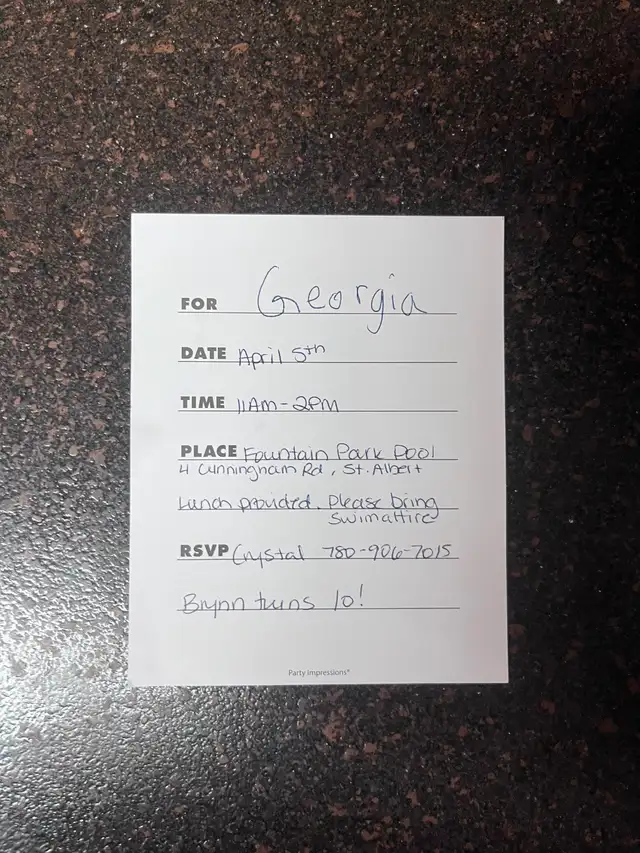 FOR Georgia
DATE April 5th
TIME 11AM-2PM
PLACE Fountain Park Pool
4 Cunningham Rd, St. Albert
Lunch provided. Please bring
swim attire
RSVP Crystal 780-906-7015
Brynn turns 10!
Party Impressions®